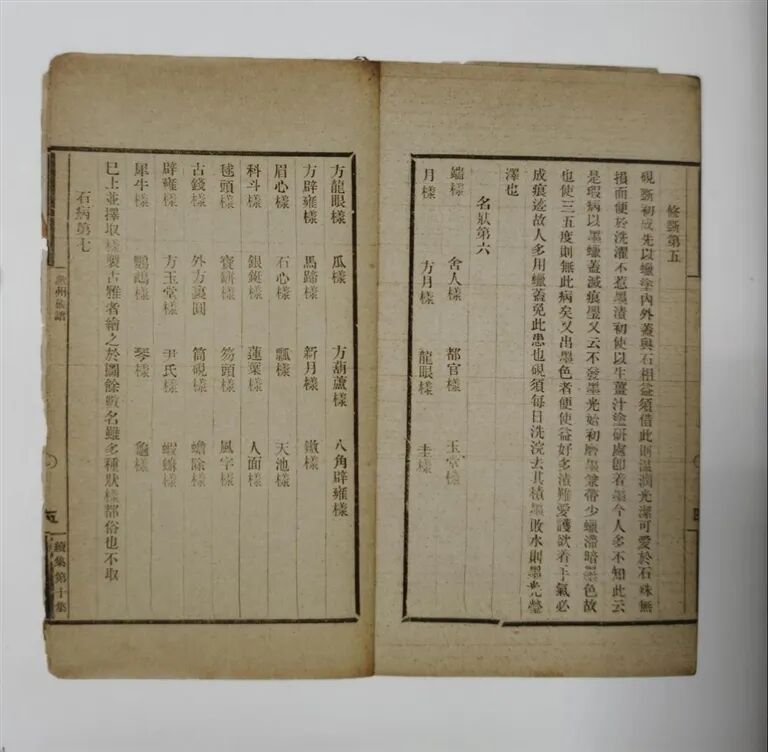 修斲第五
硯斲初成先以蠟塗內外蓋與石相益須借此則温潤光潔可愛於石殊無
損而便於洗濯不惹墨漬初使以生薑汁塗研處卽着墨今人多不知此云
是瑕病以墨蠟蓋滅痕璺又云不發墨光始初磨墨兼帶少蠟滯暗墨色故
也使三五度則無此病矣又出墨色者便使益好多漬難愛護欲着手氣必
成痕迹故人多用蠟蓋免此患也硯須每日洗浣去其積墨敗水則墨光瑩
澤也
名狀第六
端樣 舍人樣 都官樣 玉堂樣
月樣 方月樣 龍眼樣 圭樣
四
方龍眼樣 瓜樣 方葫蘆樣 八角辟雍樣
方辟雍樣 馬蹄樣 新月樣 樣
眉心樣 石心樣 瓢樣 天池樣
科斗樣 銀鋌樣 蓮葉樣 人面樣
毬頭樣 寶缾樣 笏頭樣 風字樣
古錢樣 外方裏圓 筒硯樣 蟾除樣
辟雍樣 方玉堂樣 尹氏樣 蝦蟇樣
犀牛樣 鸚鵡樣 琴樣 龜樣
已上並擇取樣製古雅者繪之於圖餘數名雖多種狀樣都俗也不取
石病第七
州硯譜
五
續集第十集